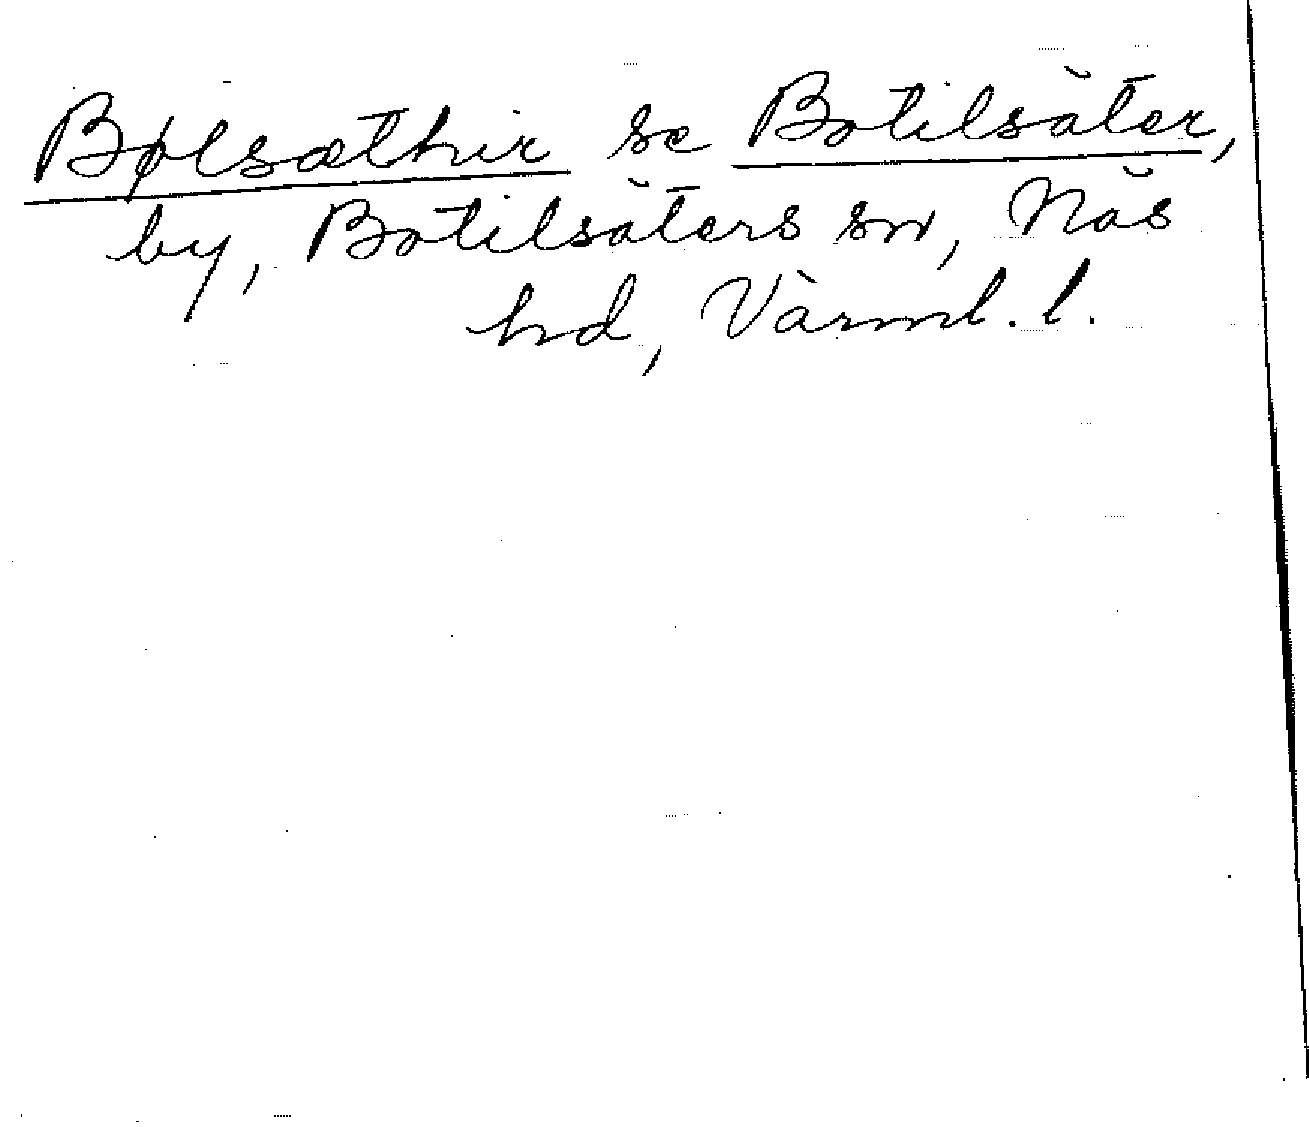 Bølsæthir se Botilsäter,
by, Botilsäters sn, Näs
hd, Värml. l.